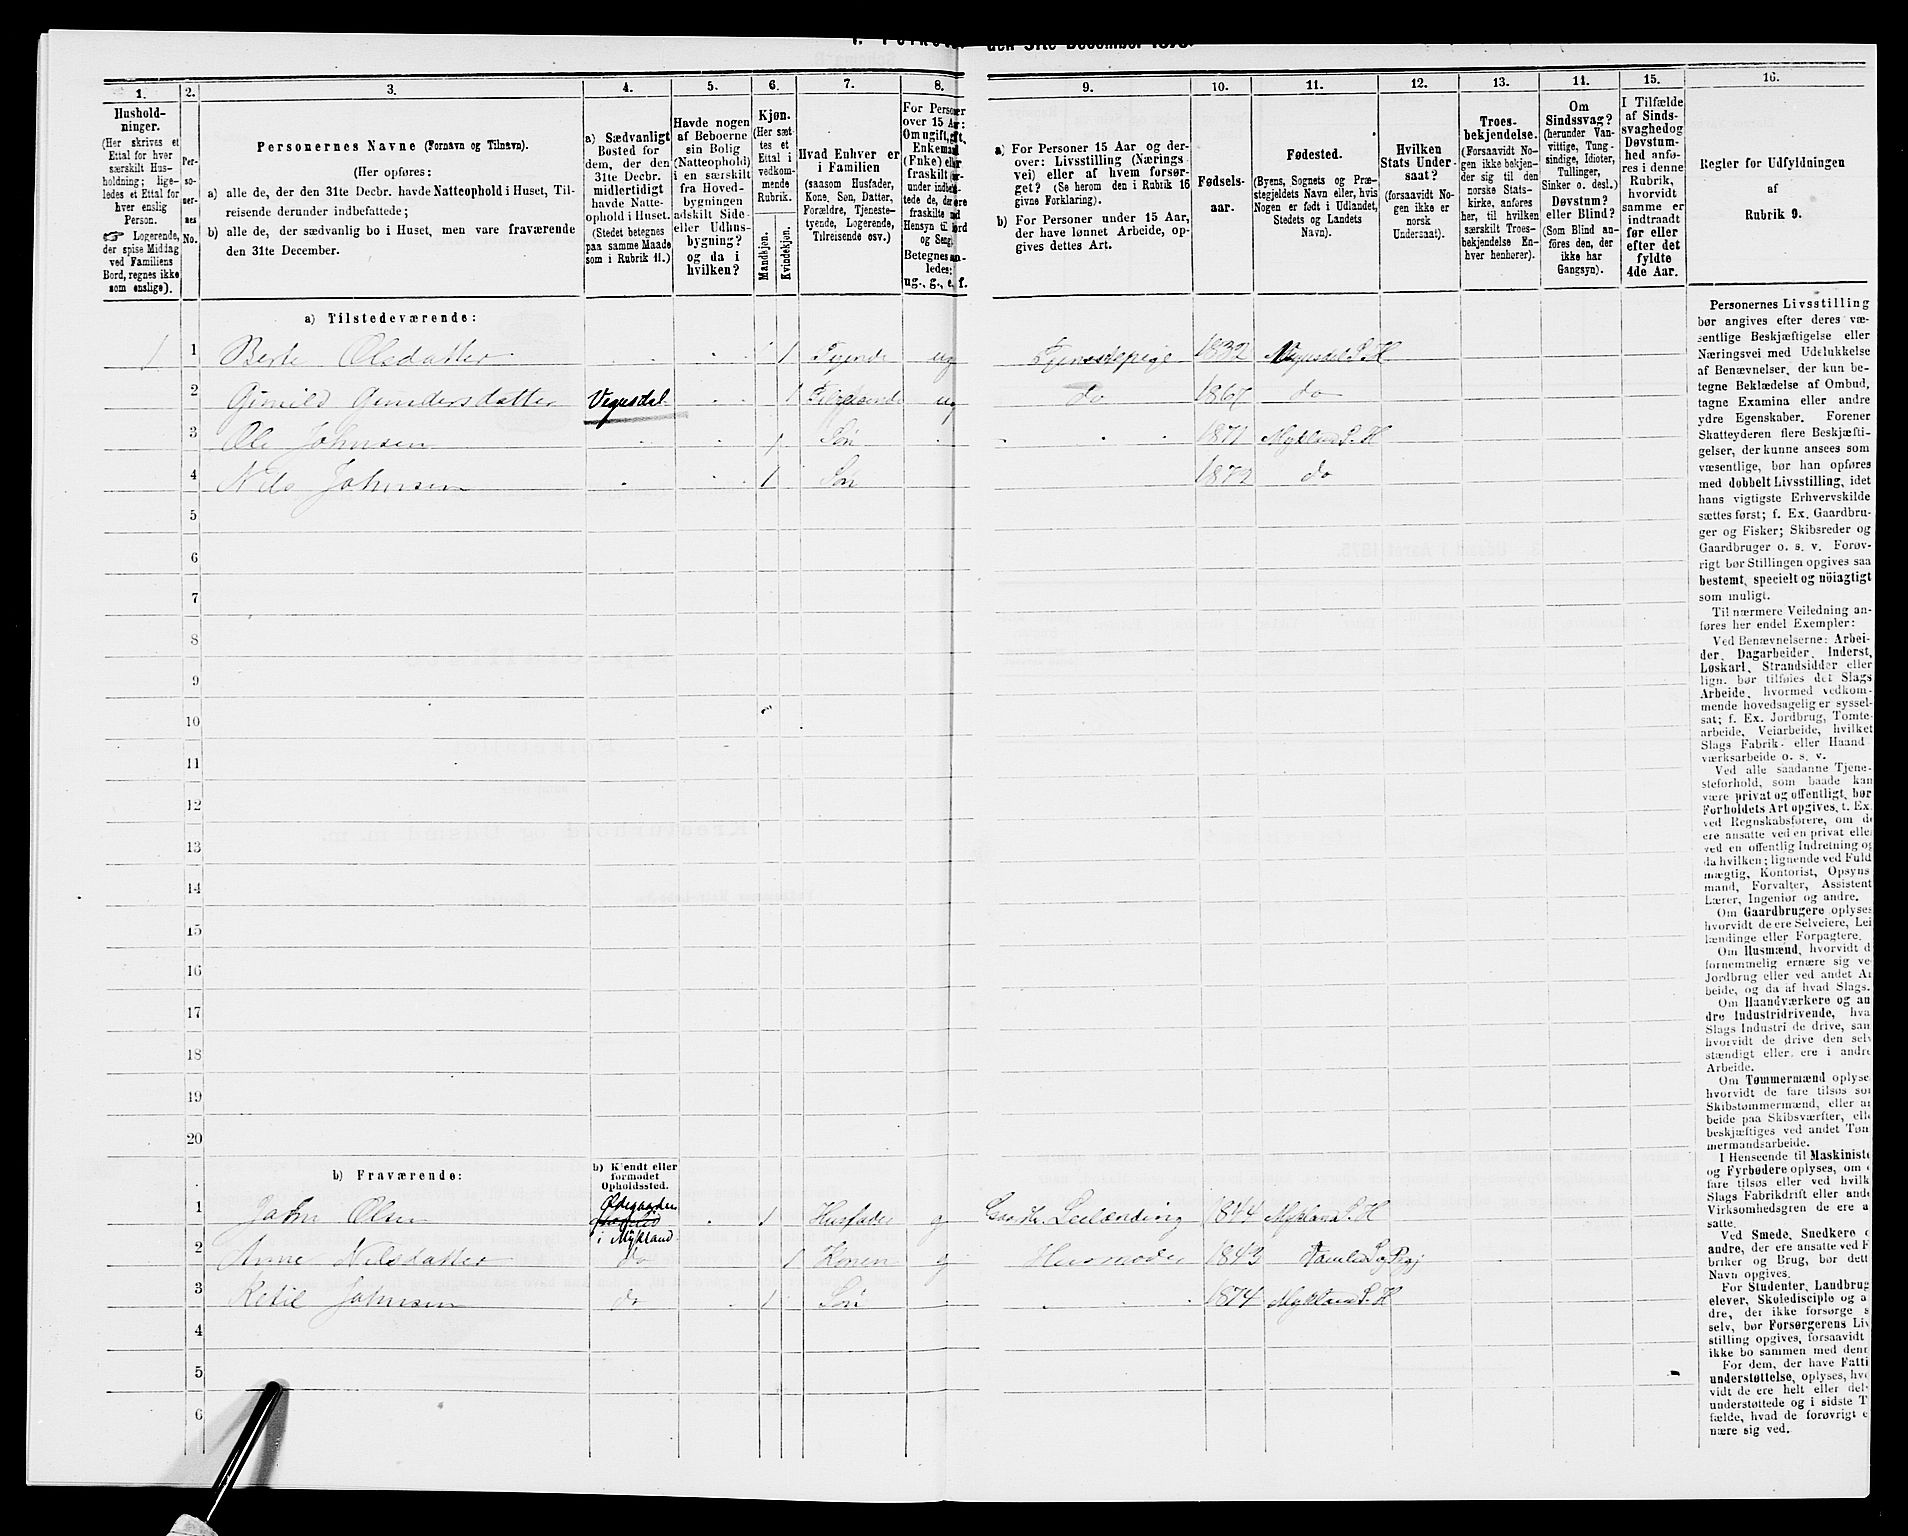 den 31te December 1875.
1.
Hushold-
ninger.
(Her skrives et
Ettal for hver
særskilt Hus-
holdning; lige-
ledes et Ettal for
hver enslig
Person.
☞ Logerende,
der spise Middag
ved Familiens
Bord, regnes ikke
som enslige).
2.
Per-
so-
ner-
nes
No.
3.
Personernes Navne (Fornavn og Tilnavn).
(Her opføres:
a) alle de, der den 31te Decbr. havde Natteophold i Huset, Til-
reisende derunder indbefattede;
b) alle de, der sædvanlig bo i Huset, men vare fraværende
den 31te December.
4.
a) Sædvanligt
Bosted for
dem, der den
31te Decbr.
midlertidigt
havde Natte-
ophold i Huset.
(Stedet betegnes
paa samme Maade
som i Rubrik 11.)
5.
Havde nogen
af Beboerne
sin Bolig
(Natteophold)
i en særskilt
fra Hoved-
bygningen
adskilt Side-
eller Udhus-
bygning?
og da i
hvilken?
6.
Kjøn.
(Her sæt-
tes et
Ettal i
vedkom-
mende
Rubrik.
Mandkjøn.
Kvindekjøn.
7.
Hvad Enhver er
i Familien
(saasom Husfader,
Kone, Søn, Datter,
Forældre, Tjeneste-
tyende, Logerende,
Tilreisende osv.)
8.
For Personer
over 15 Aar:
Om ugift, gift,
Enkemand
(Enke) eller
fraskilt
under indbefat-
tede de, der ere
fraskilte
Hensyn til Bord
og Seng.
Betegnes
ledes:
ug., g., e. f.
9.
a) For Personer 15 Aar og der-
over: Livsstilling (Nærings
vei) eller af hvem forsør-
get? (Se herom den i Rubrik 16
givne Forklaring).
b) For Personer under 15 Aar,
der have lønnet Arbeide, op-
gives dettes Art.
10.
Fødsels-
aar.
11.
Fødested.
(Byens, Sognets og Præ-
stegjeldets Navn eller, hvis
Nogen er født i Udlandet,
Stedets og Landets
Navn).
12.
Hvilken
Stats Under-
saat?
(forsaavidt No-
gen ikke er
norsk
Undersaat).
13.
Troes-
bekjendelse.
(Forsaavidt No-
gen ikke bekjen-
der sig til den
norske Stats-
kirke, anføres
her, til hvilken
særskilt Troes-
bekjendelse En-
hver henhører).
14.
Om
Sindssvag?
(herunder Van-
vittige, Tung-
sindige, Idioter,
Tullinger,
Sinker o. desl.)
Døvstum?
eller Blind?
(Som Blind an-
føres den, der
ikke har
Gangsyn).
15.
I Tilfælde
af Sinds-
svaghed og
Døvstum-
hed anfø-
res i denne
Rubrik,
hvorvidt
samme er
indtraadt
før eller
efter det
fyldte
4de Aar.
16.
Regler for Udfyldningen
af
Rubrik 9.
a) Tilstedeværende:
1 1 Berte Olsdatter 1 Tyende ug Tjenestepige 1832 Vegusdal S. H
2 Gunild Gundersdatter Vegusdal 1 ug do do
3 Ole Johnsen 1 Søn 1871 Mykland S. H
4 Nils Johnsen 1 Søn 1872 do
5
6
7
8
9
10
11
12
13
14
15
16
17
18
19
20
b) Fraværende:
b) Kjendt eller
formodet
Opholdssted.
Ødegaarden
i Mykland
1 John Olsen 1 Husfader g Leilænding 1844 Mykland S. H
2 Anne Nilsdatter do 1 Konen g Husmoder 1843
3 Ketil Johnsen do 1 Søn 1874 Mykland S. H
4
5
6
Personernes Livsstilling
bør angives efter deres væ-
sentlige Beskjæftigelse eller
Næringsvei med Udelukkelse
af Benævnelser, der kun be-
tegne Beklædelse af Ombud,
tagne Examina eller andre
ydre Egenskaber. Forener
Skatteyderen flere Beskjæfti-
gelser, der kunne ansees som
væsentlige, bør han opføres
med dobbelt Livsstilling, idet
hans vigtigste Erhvervskilde
sættes først; f. Ex. Gaardbru-
ger og Fisker; Skibsreder og
Gaardbruger o. s. v. Forøv-
rigt bør Stillingen opgives saa
bestemt, specielt og nöiagtigt
som muligt.
Til nærmere Veiledning an-
føres her endel Exempler:
Ved Benævnelserne: Arbei-
der, Dagarbeider, Inderst,
Løskarl, Strandsidder eller
lign. bør tilføies det Slags
Arbeide, hvormed vedkom-
mende hovedsagelig er syssel-
sat; f. Ex. Jordbrug, Tomte-
arbeide, Veiarbeide, hvilket
Slags Fabrik- eller Haand-
værksarbeide o. s. v.
Ved alle saadanne Tjene-
steforhold, som baade kan
være privat og offentligt, bør
Forholdets Art opgives, t. Ex.
ved Regnskabsførere, om de
ere ansatte ved en privat eller
ved en offentlig Indretning og
da hvilken; lignende ved Fuld
mægtig, Kontorist, Opsyns
mand, Forvalter, Assistent
Lærer, Ingeniør og andre.
Om Gaardbrugere oplyses
hvorvidt de ere Selveiere, Lei
lændinge eller Forpagtere.
Om Husmænd, hvorvidt d
fornemmelig ernære sig ve
Jordbrug eller ved andet Ar
beide, og da af hvad Slags.
Om Haandværkere og an
dre Industridrivende, hva
Slags Industri de drive, sam
hvorvidt de drive den selv
stændigt eller ere i andre
Arbeide.
Om Tømmermænd oplyse
hvorvidt de fare tilsøs som
Skibstømmermænd, eller ar
beide paa Skibsværfter, elle
beskjæftiges ved andet Tøm
mermandsarbeide.
I Henseende til Maskiniste
og Fyrbødere oplyses, om d
fare tilsøs eller ved hvilke
Slags Fabrikdrift eller anden
Virksomhedsgren de ere a
satte.
Ved Smede, Snedkere o
andre, der ere ansatte ved F
briker og Brug, bør dett
Navn opgives.
For Studenter, Landbrugs
elever, Skoledisciple og a
dre, der ikke forsørge s
selv, bør Forsørgerens Liv
stilling opgives, forsaavidt
ikke bo sammen med denn
For dem, der have Fatti
understøttelse, oplyses, hvo
vidt de ere helt eller del
understøttede og i sidste T
fælde, hvad de forøvrigt e
nære sig ved.